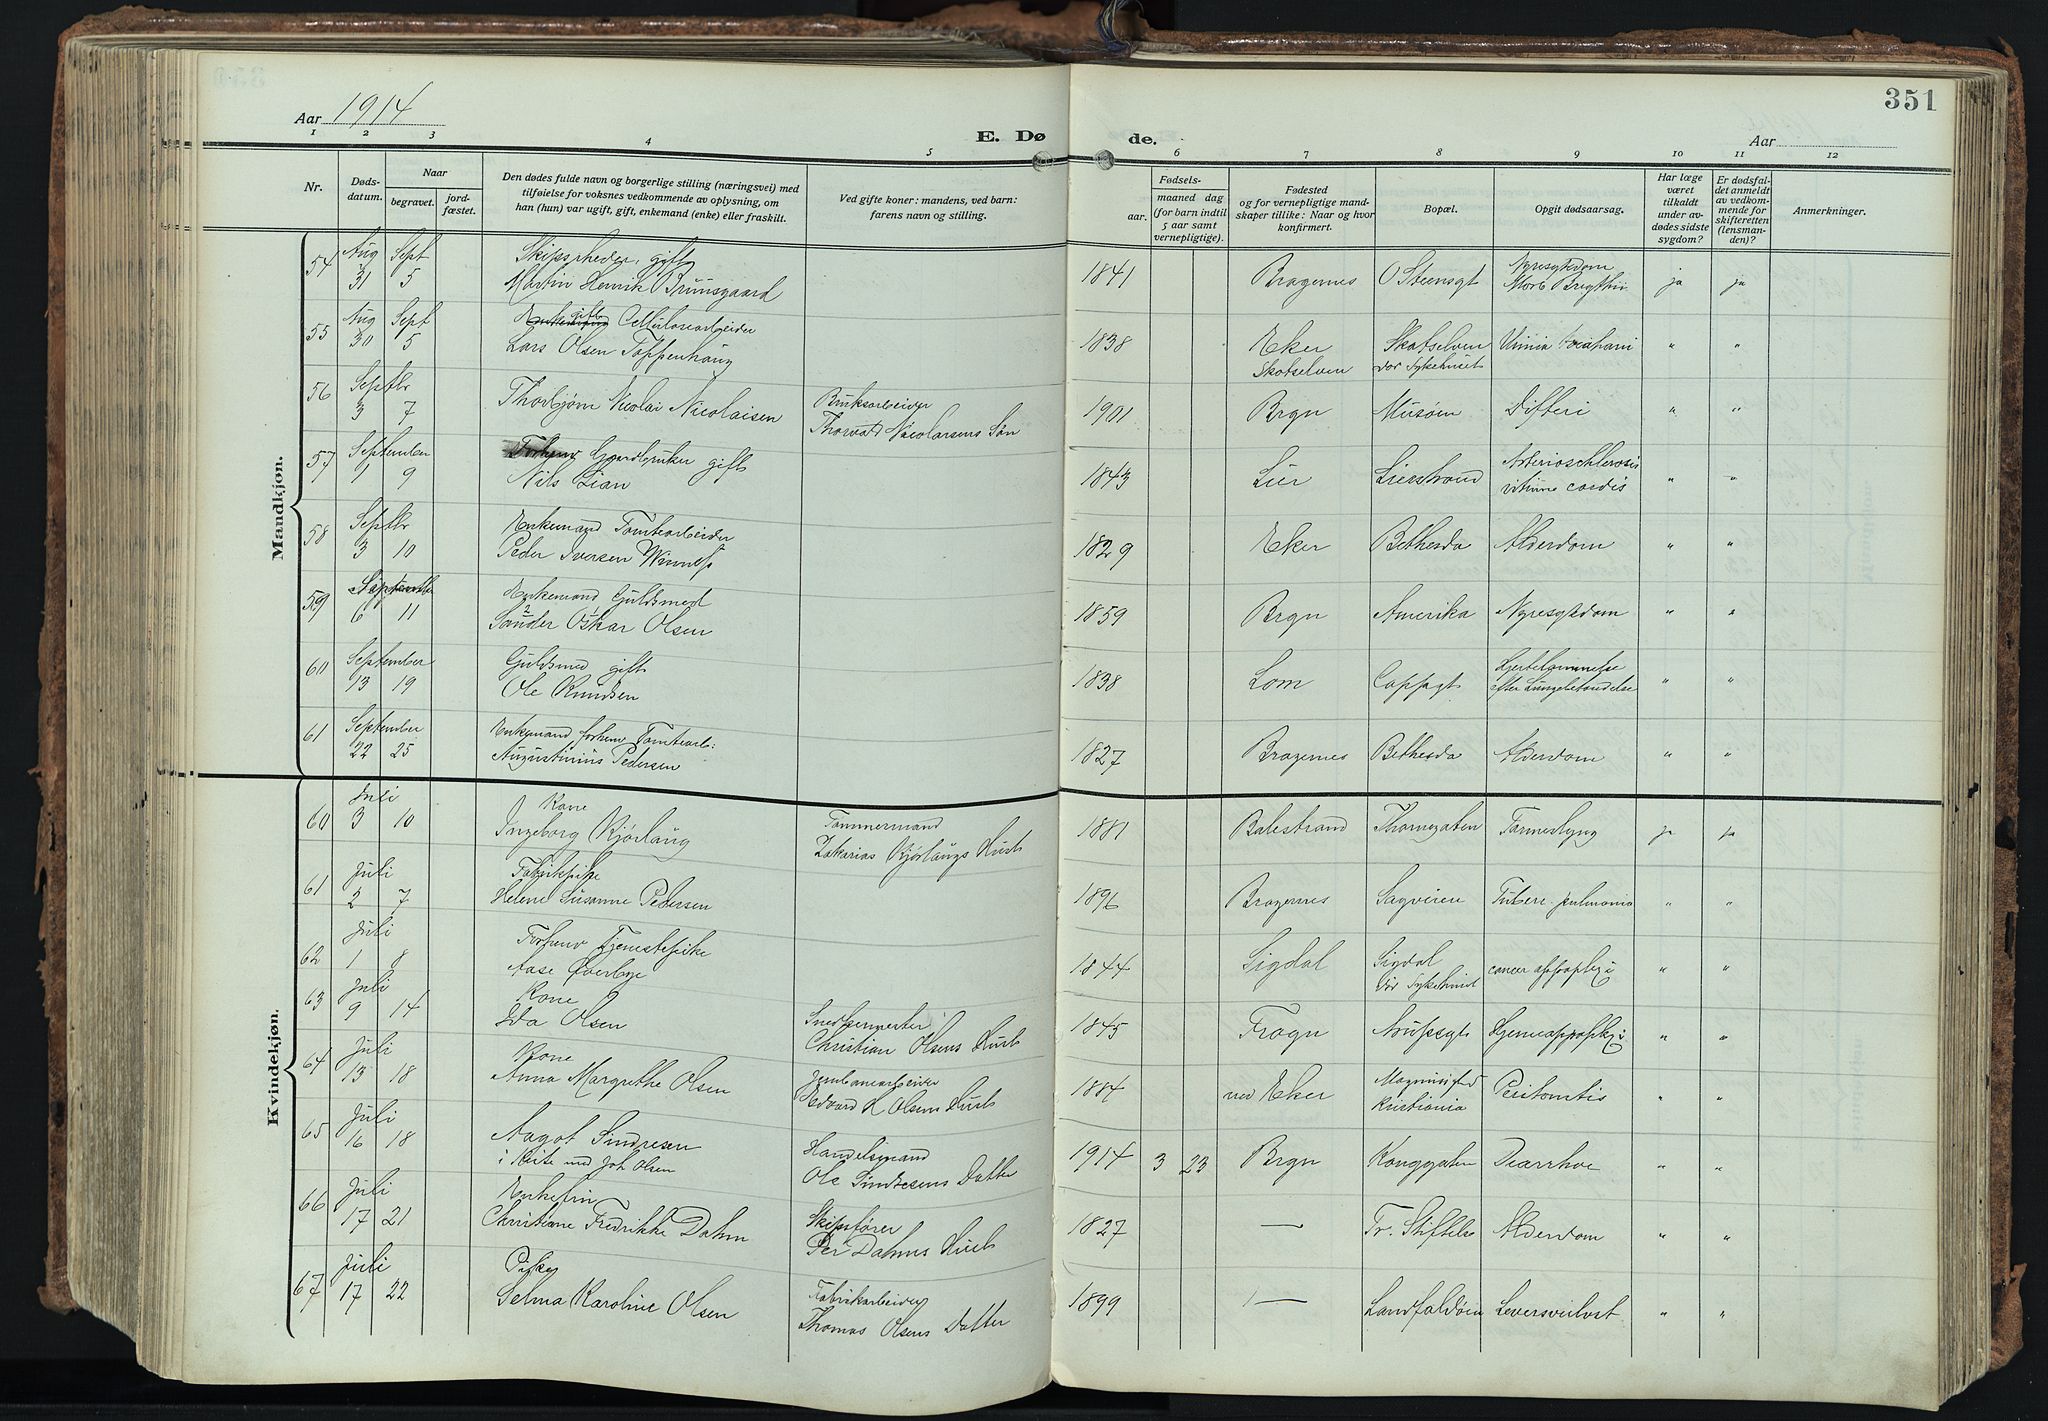 351
Aar 1914
E. Døde.
Aar
1 2 3 4 5 6 7 8 9 10 11 12
Nr.
Døds-
datum.
Naar
begravet.
jord-
fæstet.
Den dødes fulde navn og borgerlige stilling (næringsvei) med
tilføielse for voksnes vedkommende av oplysning, om
han (hun) var ugift, gift, enkemand (enke) eller fraskilt.
Ved gifte koner: mandens, ved barn:
farens navn og stilling.
Fødsels-
aar. maaned dag
(for barn indtil
5 aar samt
vernepligtige).
Fødested
og for vernepligtige mand-
skaper tillike: Naar og hvor
konfirmert.
Bopæl.
Opgit dødsaarsag.
Har læge
været
tilkaldt
under av-
dødes sidste
sygdom?
Er dødsfal-
det anmeldt
av vedkom-
mende for
skifteretten
(lensman-
den)?
Anmerkninger.
Mandkjøn.
Aug Sept Skipsrheder, gift Nyresygdom
54 31 5 Martin Henrik Bruusgaard 1841 Bragernes O Steensgt Morb Brigthii ja ja
Aug Sept gift Cellulosearbeider
55 30 5 Lars Olsen Toppenhaug 1838 Eker Skotselven " "
Skotselven dør Sykehuset
Septbr Bruksarbeider
56 3 7 Thorbjørn Nicolai Nicolaisen Thorvald Nicolaisens Søn 1901 Brgn Musøen Difteri " "
September Forhenv Gaardbruker gift Arterioschlerosis
57 1 9 Nils Lian 1843 Lier Lierstrand vitium cordis " "
Septbr Enkemand Tomtearbeider
58 3 10 Peder Iversen 1829 Eker Bethesda Alderdom " "
September Enkemand Guldsmed
2 1
59 6 11 Sander Oskar Olsen 1859 Brgn Amerika Nyresygdom " "
September Guldsmed gift Hjertelammelse
60 13 19 Ole Knudsen 1838 Lom Cappsgt efter Lungebetændelse " "
September Enkemand forhenv Tomtearb:
61 22 25 Augustinius Pedersen 1827 Bragernes Bethesda Alderdom " "
Kvindekjøn.
Juli Kone Tømmermand
60 3 10 Ingeborg Kjørlaug Zakarias Kjørlaugs Hust 1881 Balestrand Thornegaten Tarmeslyng ja ja
Juli Fabrikpike
61 2 7 Helene Susanne Pedersen 1896 Bragernes Sagveien Tuberc. pulmonia " "
Juli Forhenv Tjenestepike
62 1 8 Aase Øverbye 1844 Sigdal Sigdal cancer " "
dør Sykehuset
Juli Kone Snedkermester
63 9 14 Ida Olsen Christian Olsens Hust 1845 Frogn Hjerneapoplexi " "
Juli Kone Jernbanearbeider
64 13 18 Anna Margrethe Olsen Edvard H Olsens Hust 1884 ned Eker Kristiania Peritonitis " "
Juli Handelsmand
65 16 18 Aagot Sindresen Ole Sindresens Datter 1914 3 23 Brgn Konggaten Diarrhoe " "
i Kiste med Joh Olsen
Juli Enkefru Skipsfører
66 17 21 Christiane Fredrikke Dahm Per Dahms Hust 1827 — Tr. Stiftelse Alderdom " "
Juli Pike Fabrikarbeider
67 17 22 Selma Karoline Olsen Thomas Olsens Datter 1899 — Landfaldøen " "